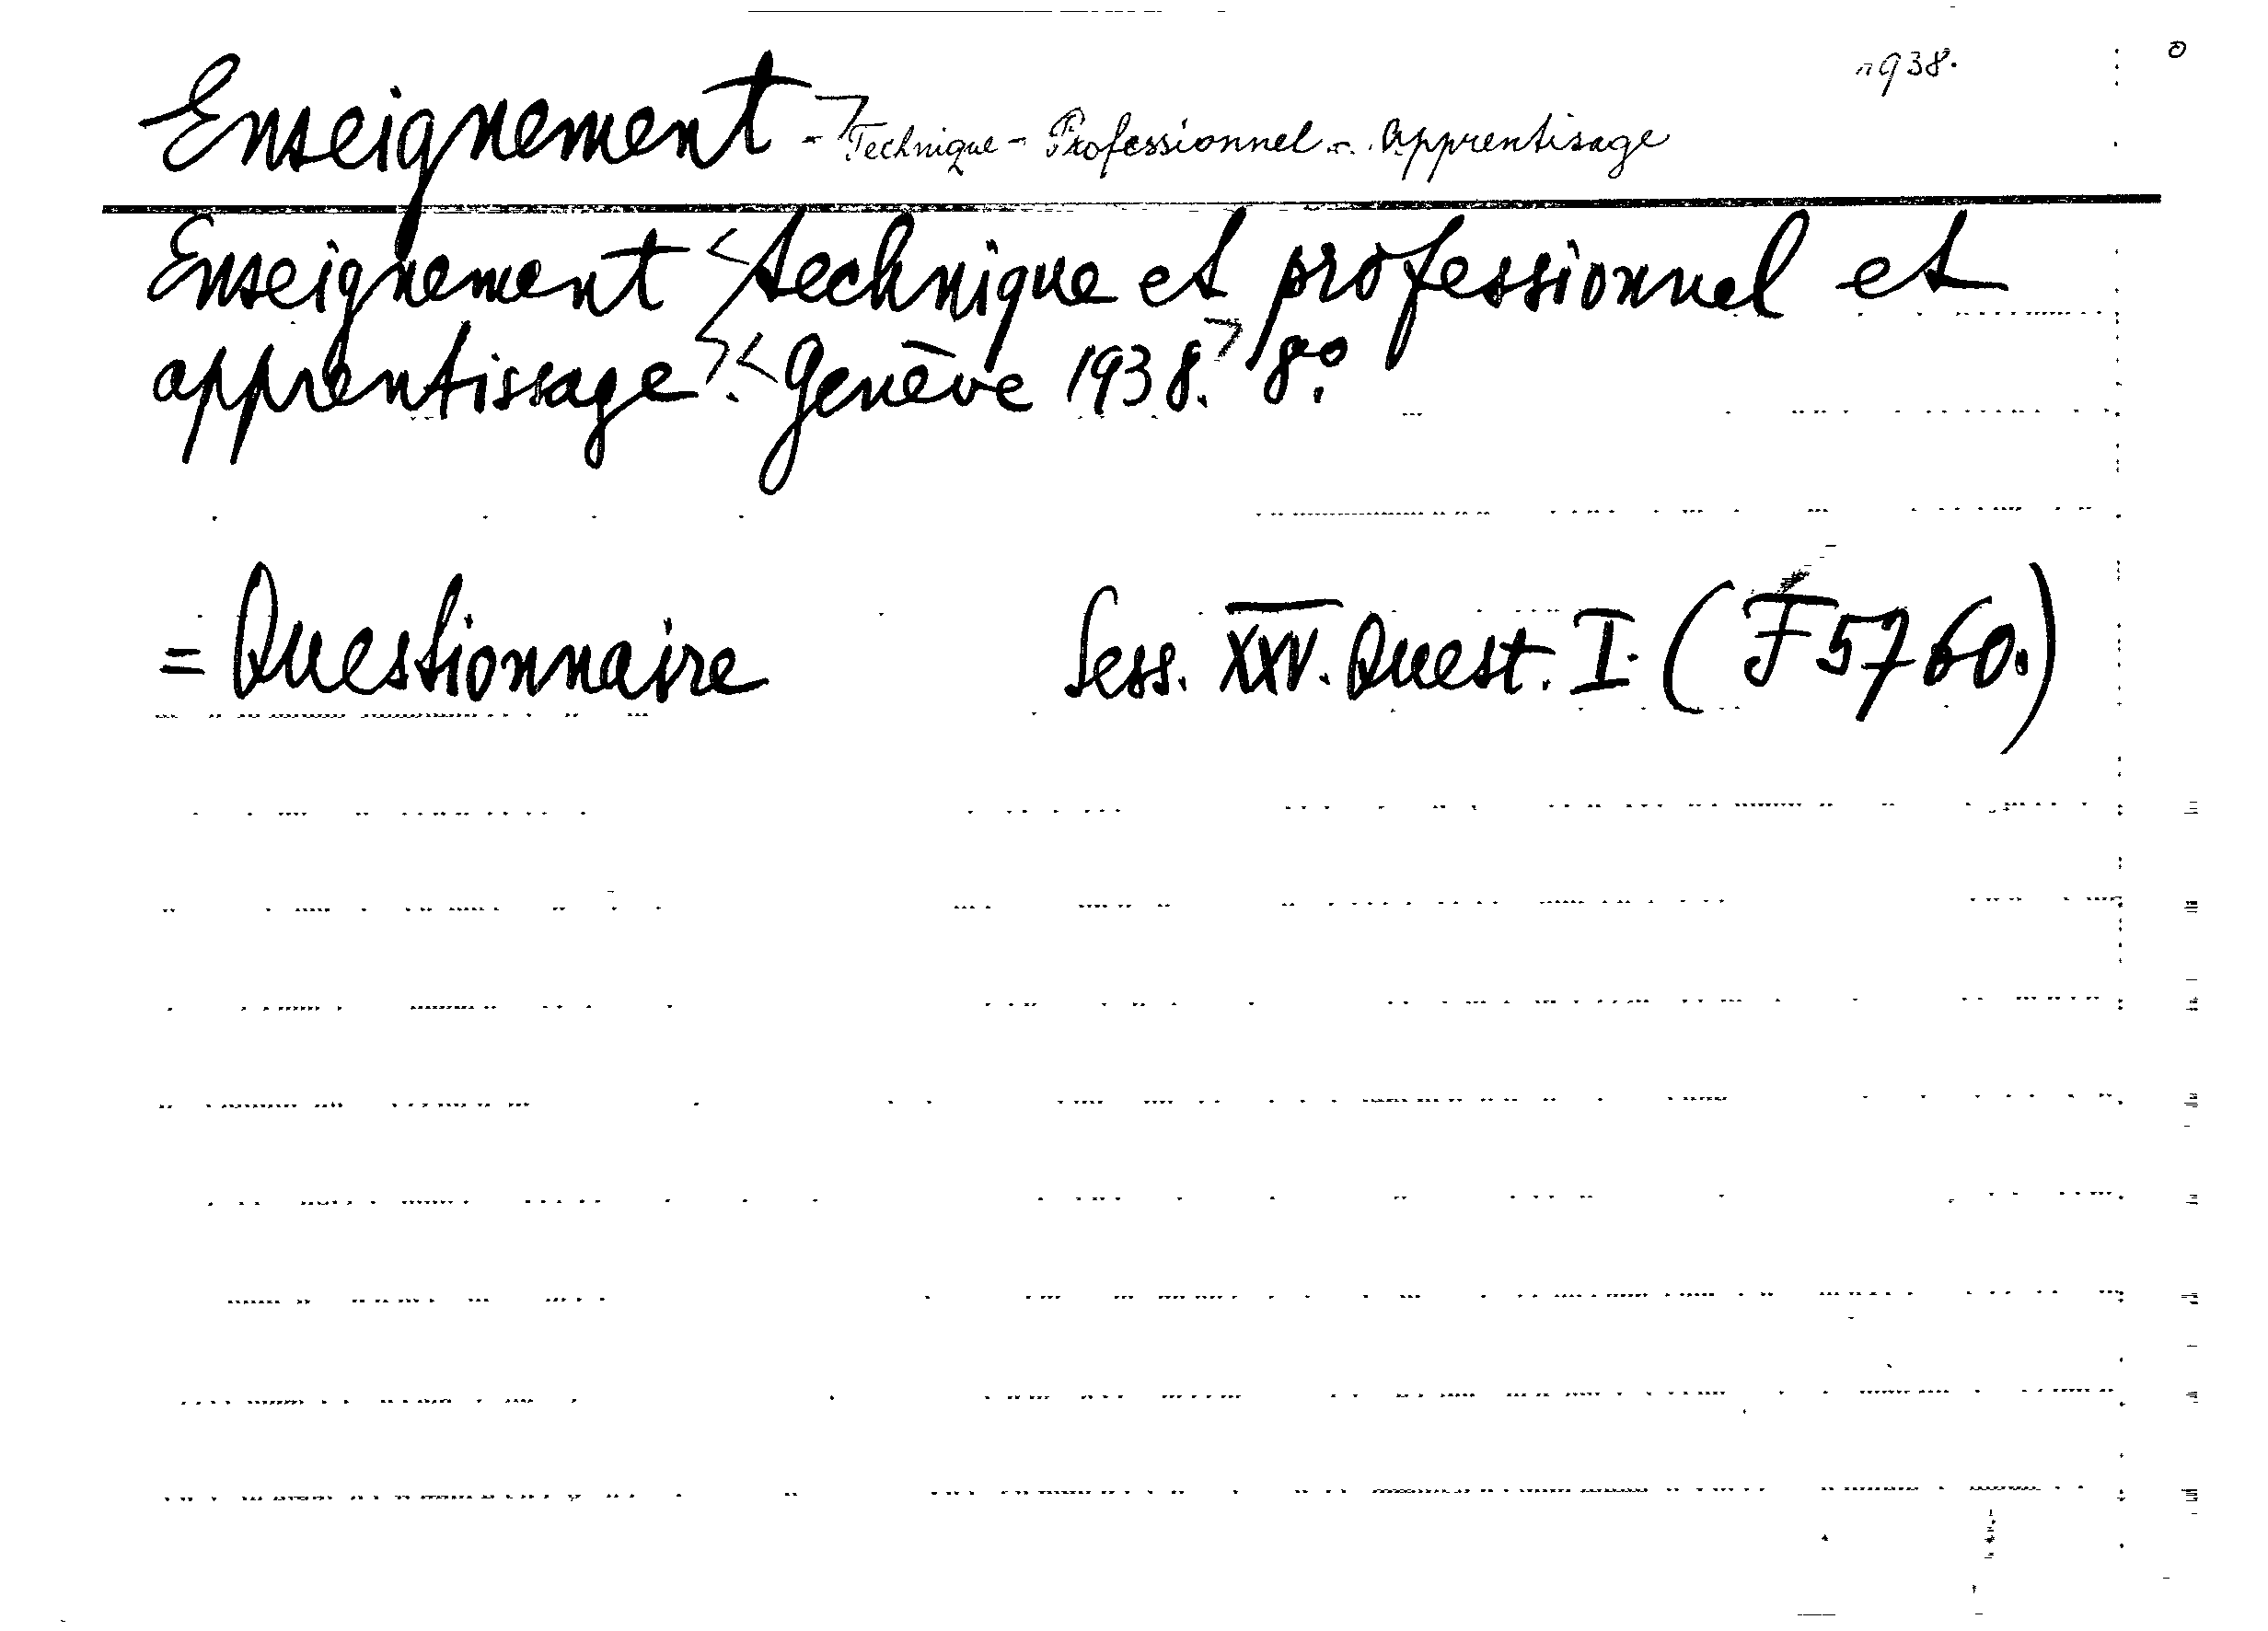 1938.
Enseignement - Technique - Professionnel - Apprentisage
Enseignement <technique et professionnel et
apprentissage>. <Genève 1938.> 8º.
= Questionnaire Sess. XXV. Quest. I. (F 5760.)